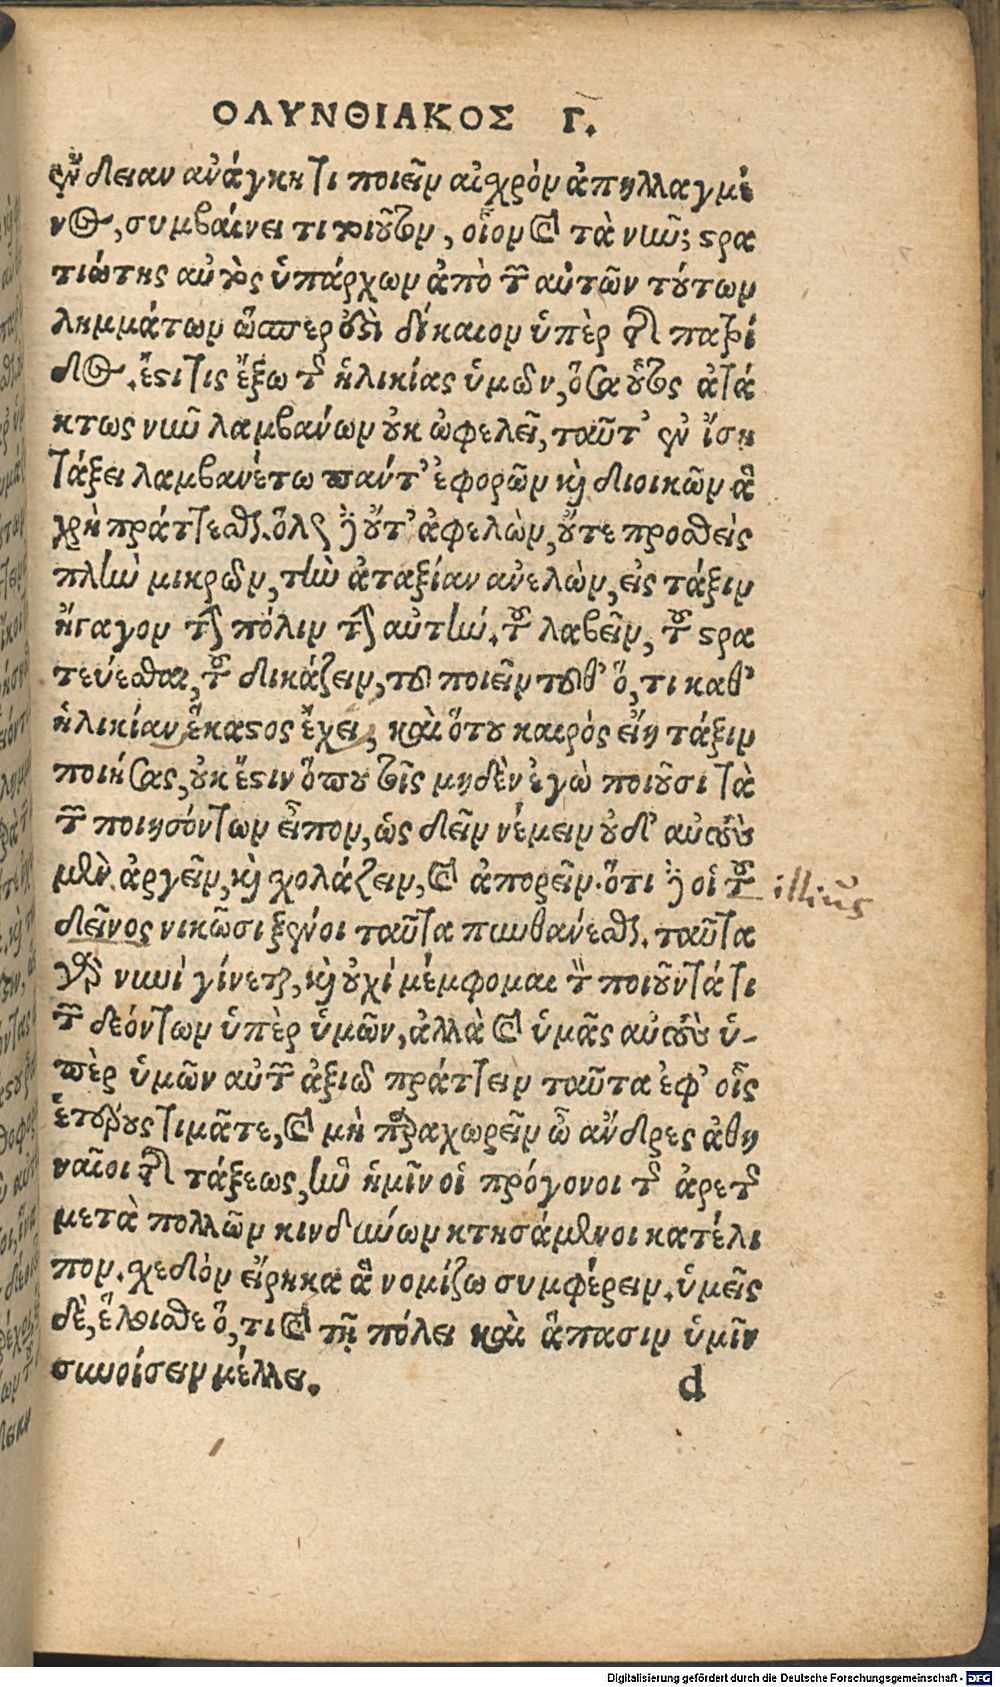 ΟΛΥΝΘΙΑΚΟΣ Γ.
ἔνδειαν ἀνάγκῃ τι ποιεῖν αἰσχρὸν ἀπηλλαγμέ
νος, συμβαίνει τι τοιοῦτον, οἷον καὶ τὰ νῦν; στρα
τιώτης αὐτὸς ὑπάρχων ἀπὸ τῶν αὐτῶν τούτων
λημμάτων ὥσπερ ὅστὶ δίκαιον ὑπὲρ τῆς πατρί
δος. ἔστι τις ἔξω τῆς ἡλικίας ὑμῶν, ὅσα οὗτος ἀτά
κτως νῦν λαμβάνων οὐκ ὠφελεῖ, ταῦτ' ἐν ἴσῃ
τάξει λαμβανέτω πάντ' ἐφορῶν καὶ διοικῶν ἃ
χρὴ πράττεσθαι. ὅλως δὲ οὔτ' ἀφελὼν, οὔτε προσθεὶς
πλὴν μικρῶν, τὴν ἀταξίαν ἀνελὼν, εἰς τάξιν
ἤγαγον τὴν πόλιν τὴν αὐτὴν. τοῦ λαβεῖν, τοῦ στρα
τεύεσθαι, τοῦ δικάζειν, τοῦ ποιεῖν τοῦθ' ὅ, τι καθ'
ἡλικίαν ἕκαστος ἔχει, καὶ ὅτου καιρὸς εἴη τάξιν
ποιήσας, οὐκ ἔστιν ὅπου τοῖς μηδὲν ἐγὼ ποιοῦσι τὰ
τῶν ποιησόντων εἶπον, ὡς δεῖν νέμειν οὐδ' αὐτοὺς
μὲν ἀργεῖν, καὶ σχολάζειν, καὶ ἀπορεῖν. ὅτι δὲ οἱ τοῦ illius
δεῖνος νικῶσι ξένοι ταῦτα πυνθάνεσθαι. ταῦτα
γὰρ νυνὶ γίνεται, καὶ οὐχὶ μέμφομαι τὸν ποιοῦντά τι
τῶν δεόντων ὑπὲρ ὑμῶν, ἀλλὰ καὶ ὑμᾶς αὐτοὺς ὑ-
πὲρ ὑμῶν αὐτῶν ἀξιῶ πράττειν ταῦτα ἐφ' οἷς
ἑτέρους τιμᾶτε, καὶ μὴ παραχωρεῖν ὦ ἄνδρες ἀθη
ναῖοι τῆς τάξεως, ἣν ἡμῖν οἱ πρόγονοι τῆς ἀρετῆς
μετὰ πολλῶν κινδύνων κτησάμενοι κατέλι
πον. σχεδὸν εἴρηκα ἃ νομίζω συμφέρειν. ὑμεῖς
δὲ, ἕλοισθε ὅ, τι καὶ τῇ πόλει καὶ ἅπασιν ὑμῖν
συνοίσειν μέλλει. d
Digitalisierung gefördert durch die Deutsche Forschungsgemeinschaft - DFG